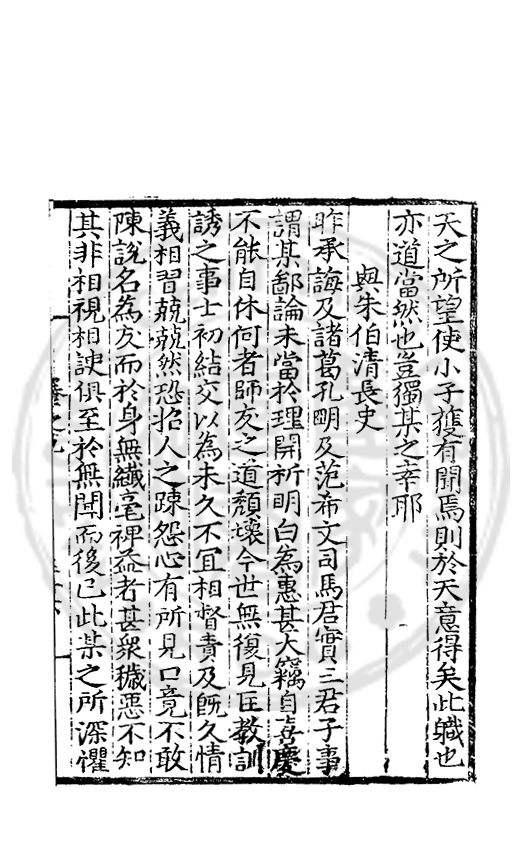 天之所望使小子獲有聞焉則於天意得矣此職也
亦道當然也豈獨某之幸耶
與朱伯清長史
昨承誨及諸葛孔明及范希文司馬君實三君子事
謂某鄙論未當於理開析明白為惠甚大竊自喜慶
不能自休何者師友之道頽壞今世無復見匡教訓
誘之事士初結交以為未久不冝相督責及旣久情
義相習兢兢然恐招人之踈怨心有所見口竟不敢
陳說名為友而於身無纖毫裨益者甚衆穢惡不知
其非相視相諛俱至於無聞而後已此某之所深懼